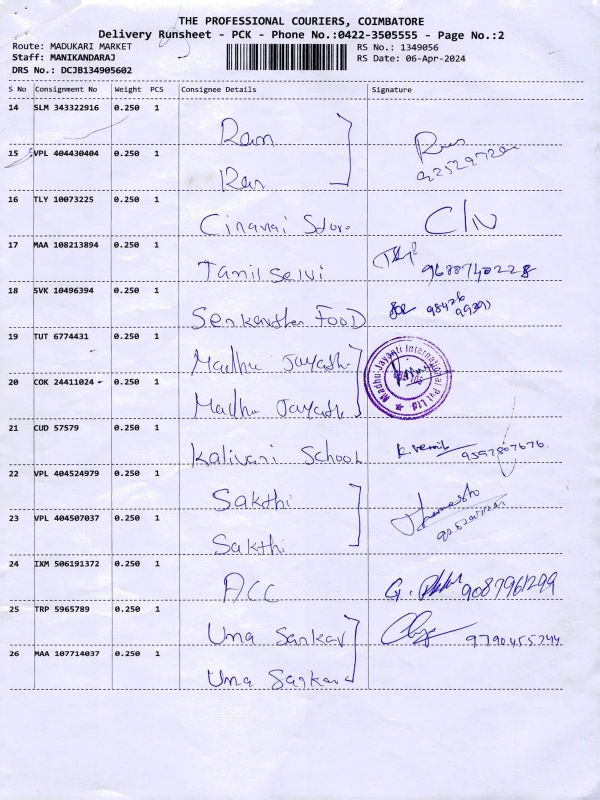 THE PROFESSIONAL COURIERS, COIMBATORE
Delivery Runsheet - PCK - Phone No.:0422-3505555 - Page No.:2
Route: MADUKARI MARKET RS No.: 1349056
Staff: MANIKANDARAJ RS Date: 06-Apr-2024
DRS No.: DCJB134905602
S No Consignment No Weight PCS Consignee Details Signature
14 SLM 343322916 0.250 1
Ram
15 VPL 404430404 0.250 1
Ram
16 TLY 10073225 0.250 1
Store
17 MAA 108213894 0.250 1
Tamil Selvi 9688740228
18 SVK 10496394 0.250 1
Food
19 TUT 6774431 0.250 1
Madhu Jayanthi
Madhu Jayanti International Pvt Ltd
20 COK 24411024 0.250 1
Madhu Jayanthi
21 CUD 57579 0.250 1
Kalivani School 9597807676
22 VPL 404524979 0.250 1
Sakthi
23 VPL 404507037 0.250 1
Sakthi
24 IXM 506191372 0.250 1
ACC 9087961299
25 TRP 5965789 0.250 1
Uma Sankar 9790455244
26 MAA 107714037 0.250 1
Uma Sankar